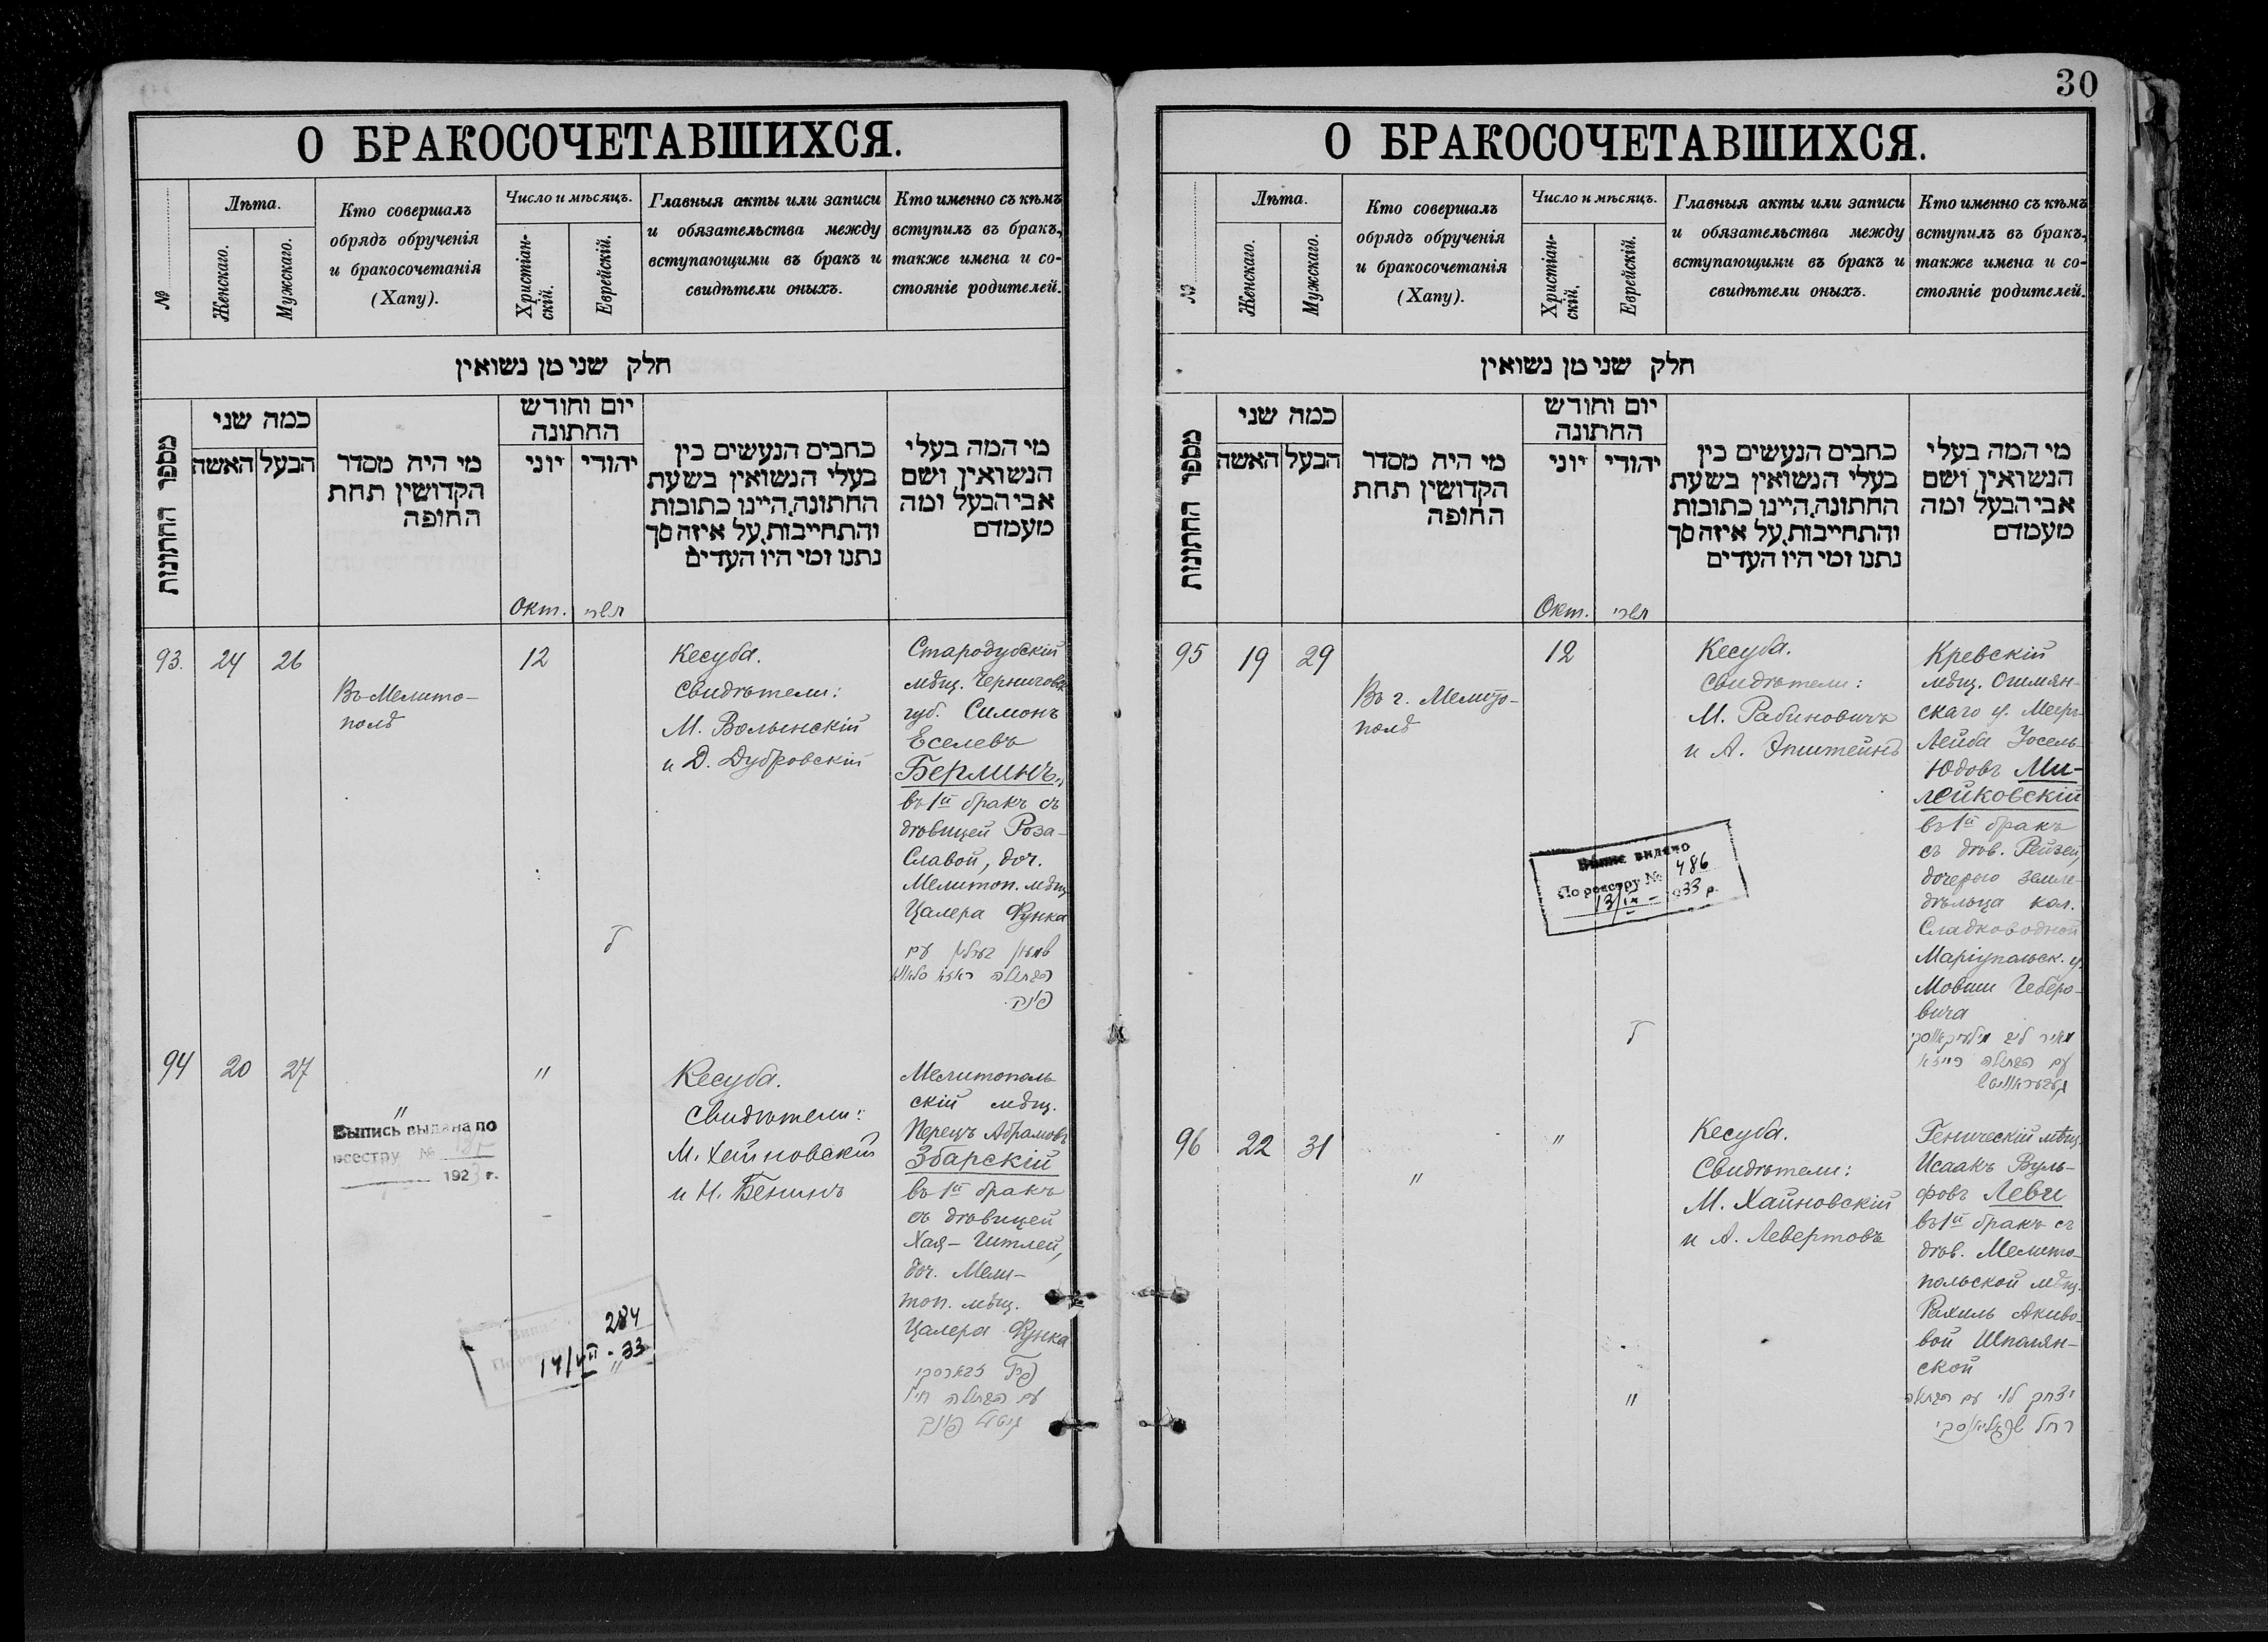 О БРАКОСОЧЕТАВШИХСЯ.
№
Лѣта.
Женскаго.
Мужскаго.
Кто совершалъ
обрядъ обрученія
и бракосочетанія
(Хапу).
Число и мѣсяцъ.
Христіан-
скій.
Еврейскій.
Главныя акты или записи
и обязательства между
вступающими въ бракъ и
свидѣтели оныхъ.
Кто именно съ кѣмъ
вступилъ въ бракъ,
также имена и со-
стояніе родителей.
חלק שני מן נשואין
מספר החתונות
כמה שני
הבעל האשה
מי היה מסדר
הקדושין תחת
החופה
יום וחודש
החתונה
יהודי יוני
כתבים הנעשים בין
בעלי הנשואין בשעת
החתונה, היינו כתובות
והתחייבות, על איזה סך
נתנו ומי היו העדים
מי המה בעלי
הנשואין ושם
אבי הבעל ומה
מעמדם
Окт. תשרי
93. 24 26
Въ Мелито-
полѣ
12
ל
Кесуба.
Свидѣтели:
М. Волынскій
и Д. Дубровскій
Стародубскій
мѣщ. Черниговск.
губ. Симонъ
Еселевъ
Берлинъ,
въ 1й бракъ съ
дѣвицей Роза-
Славой, доч.
Мелитоп. мѣщ.
Цалера Функа
שמעון בערלין עם
הבתולה ראזא סלאווא
פונק.
94 20 27
"
"
Выпись выдана по
реестру №
1923 г.
284
14/VII - 33
Кесуба.
Свидѣтели:
М. Хайновскій
и Н. Бенинъ
Мелитополь-
скій мѣщ.
Перецъ Абрамовъ
Збарскій
въ 1й бракъ
съ дѣвицей
Хая-Гитлей,
доч. Мели-
топ. мѣщ.
Цалера Функа
פרץ זבארסקי
עם הבתולה חי'
גיטל פונק
30
О БРАКОСОЧЕТАВШИХСЯ.
№
Лѣта.
Женскаго.
Мужскаго.
Кто совершалъ
обрядъ обрученія
и бракосочетанія
(Хапу).
Число и мѣсяцъ.
Христіан-
скій.
Еврейскій.
Главныя акты или записи
и обязательства между
вступающими въ бракъ и
свидѣтели оныхъ.
Кто именно съ кѣмъ
вступилъ въ бракъ,
также имена и со-
стояніе родителей.
חלק שני מן נשואין
מספר החתונות
כמה שני
הבעל האשה
מי היה מסדר
הקדושין תחת
החופה
יום וחודש
החתונה
יהודי יוני
כתבים הנעשים בין
בעלי הנשואין בשעת
החתונה, היינו כתובות
והתחייבות, על איזה סך
נתנו ומי היו העדים
מי המה בעלי
הנשואין ושם
אבי הבעל ומה
מעמדם
Окт. תשרי
95 19 29
Въ г. Мелито-
полѣ
12
ל
Випис видано
По реєстру № 486
13/IX - 1933 р.
Кесуба.
Свидѣтели:
М. Рабиновичъ
и А. Эпштейнъ
Кревскій
мѣщ. Ошмян-
скаго у. Меер-
Лейба Іосель-
Юдовъ Ми-
лейковскій
въ 1й бракъ
съ дѣв. Рейзей,
дочерью земле-
дѣльца кол.
Сладководной
Маріупольск. у.
Мовши Геберо-
вича
מאיר ליב מילייקאווסקי
עם הבתולה רייזא
96 22 31
"
"
"
Кесуба.
Свидѣтели:
М. Хайновскій
и А. Левертовъ
Геническій мѣщ.
Исаакъ Вуль-
фовъ Леви
въ 1й бракъ съ
дѣв. Мелито-
польской мѣщ.
Рахиль Акиво-
вой Шполян-
ской
יצחק לוי עם הבתולה
רחל שפאליאנסקי